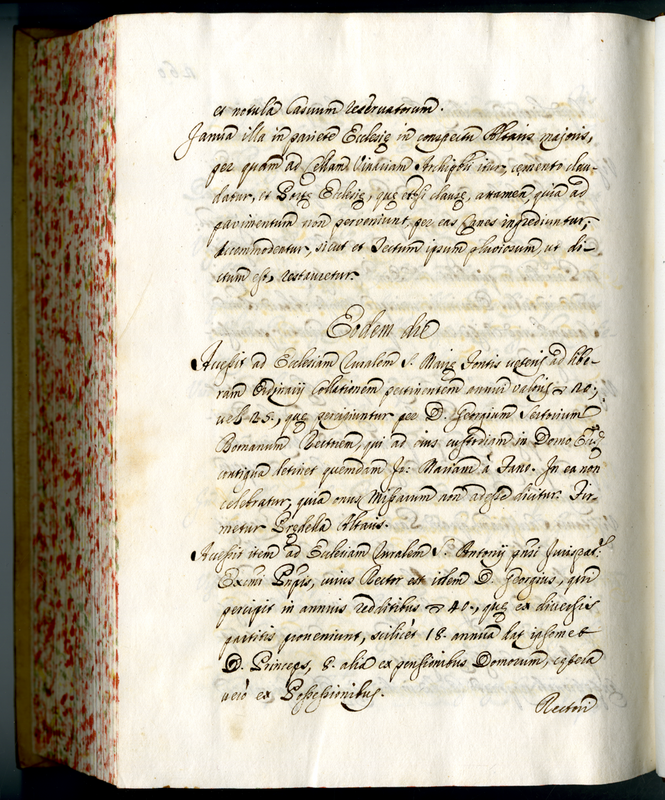 et notula Casuum reservatorum.
Janua illa in pariete Ecclesię in conspectu Altaris majoris,
per quam ad Cellam Vinariam Archipbri itur, cemento clau-
datur, et Portę Ecclesię, quę etsi clausę, attamen, quia ad
pavimentum non perveniunt, per eas Canes ingrediuntur;
Accommodentur, sicut et Tectum ipsum pluviosum, ut di-
ctum est, restauretur.
Eodem die
Accessit ad Ecclesiam Ruralem S. Marię Fontis veteris ad libe-
ram Ordinarij Collationem pertinentem annui valoris 20;
vel 25, quę percipiuntur per D. Georgium Sertorium
Romanum Rectorem, qui ad eius custodiam in Domo
antiqua detinet quemdam Jo: Mariam à Fano. In ea non
celebratur, quia onus Missarum non adesse dicitur. Fir-
metur Predella Altaris.
Accessit item ad Ecclesiam Ruralem S. Antonij Jurispat:
Excmi Pnpis, cuius Rector est idem D. Georgius, qui
percipit in annuis redditibus 40, quę ex diversis
partitis proveniunt, scilicet 18 annua dat ipsemet
D. Princeps, 8 alia ex pensionibus Domorum, cętera
verò ex Possessionibus.
Rectori